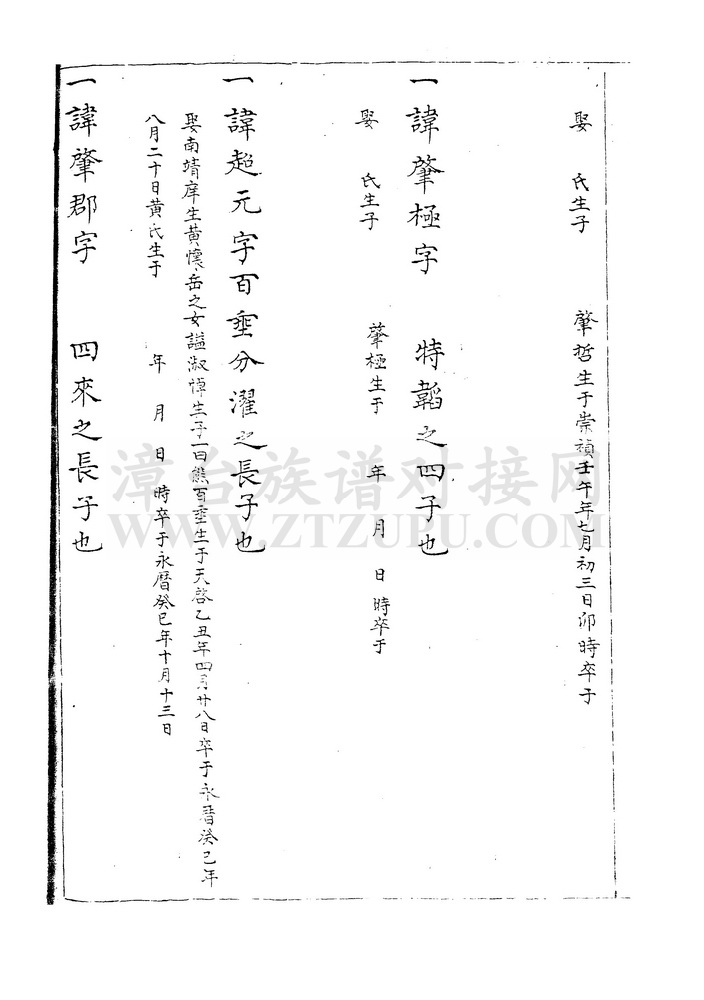 娶　氏生子　　肇哲生于崇禎壬午年七月初三日卯時卒于
一諱肇極字　特韜之四子也
娶　氏生子　　肇極生于　年　月　日　時卒于
一諱超元字百垂分濯之長子也
娶南靖庠生黃懷岳之女謚淑惇生子一曰熊百垂生于天啓乙丑年四月廿八日卒于永曆癸巳年
八月二十日黃氏生于　年　月　日　時卒于永曆癸巳年十月十三日
一諱肇郡字　四來之長子也
漳台族谱对接网
WWW.ZTZUPU.COM